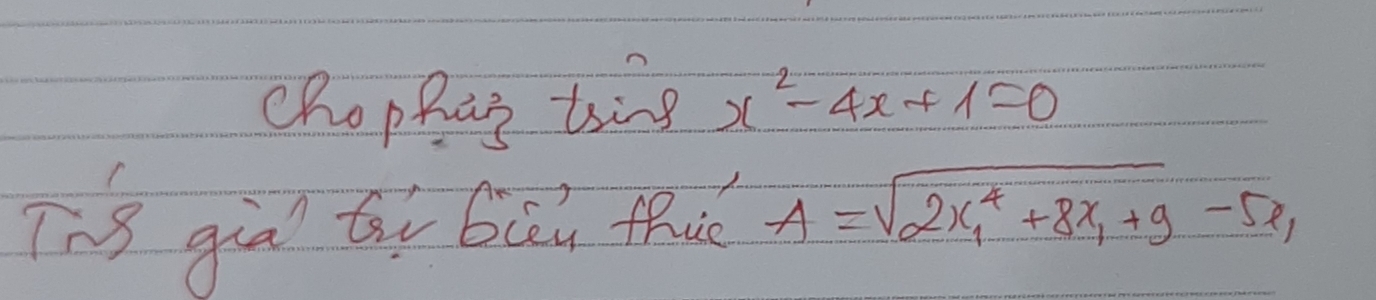 Cho phương trình x² - 4x + 1 = 0
Tính giá trị biểu thức A = √(2x₁⁴ + 8x₁ + 9) - 5x₁